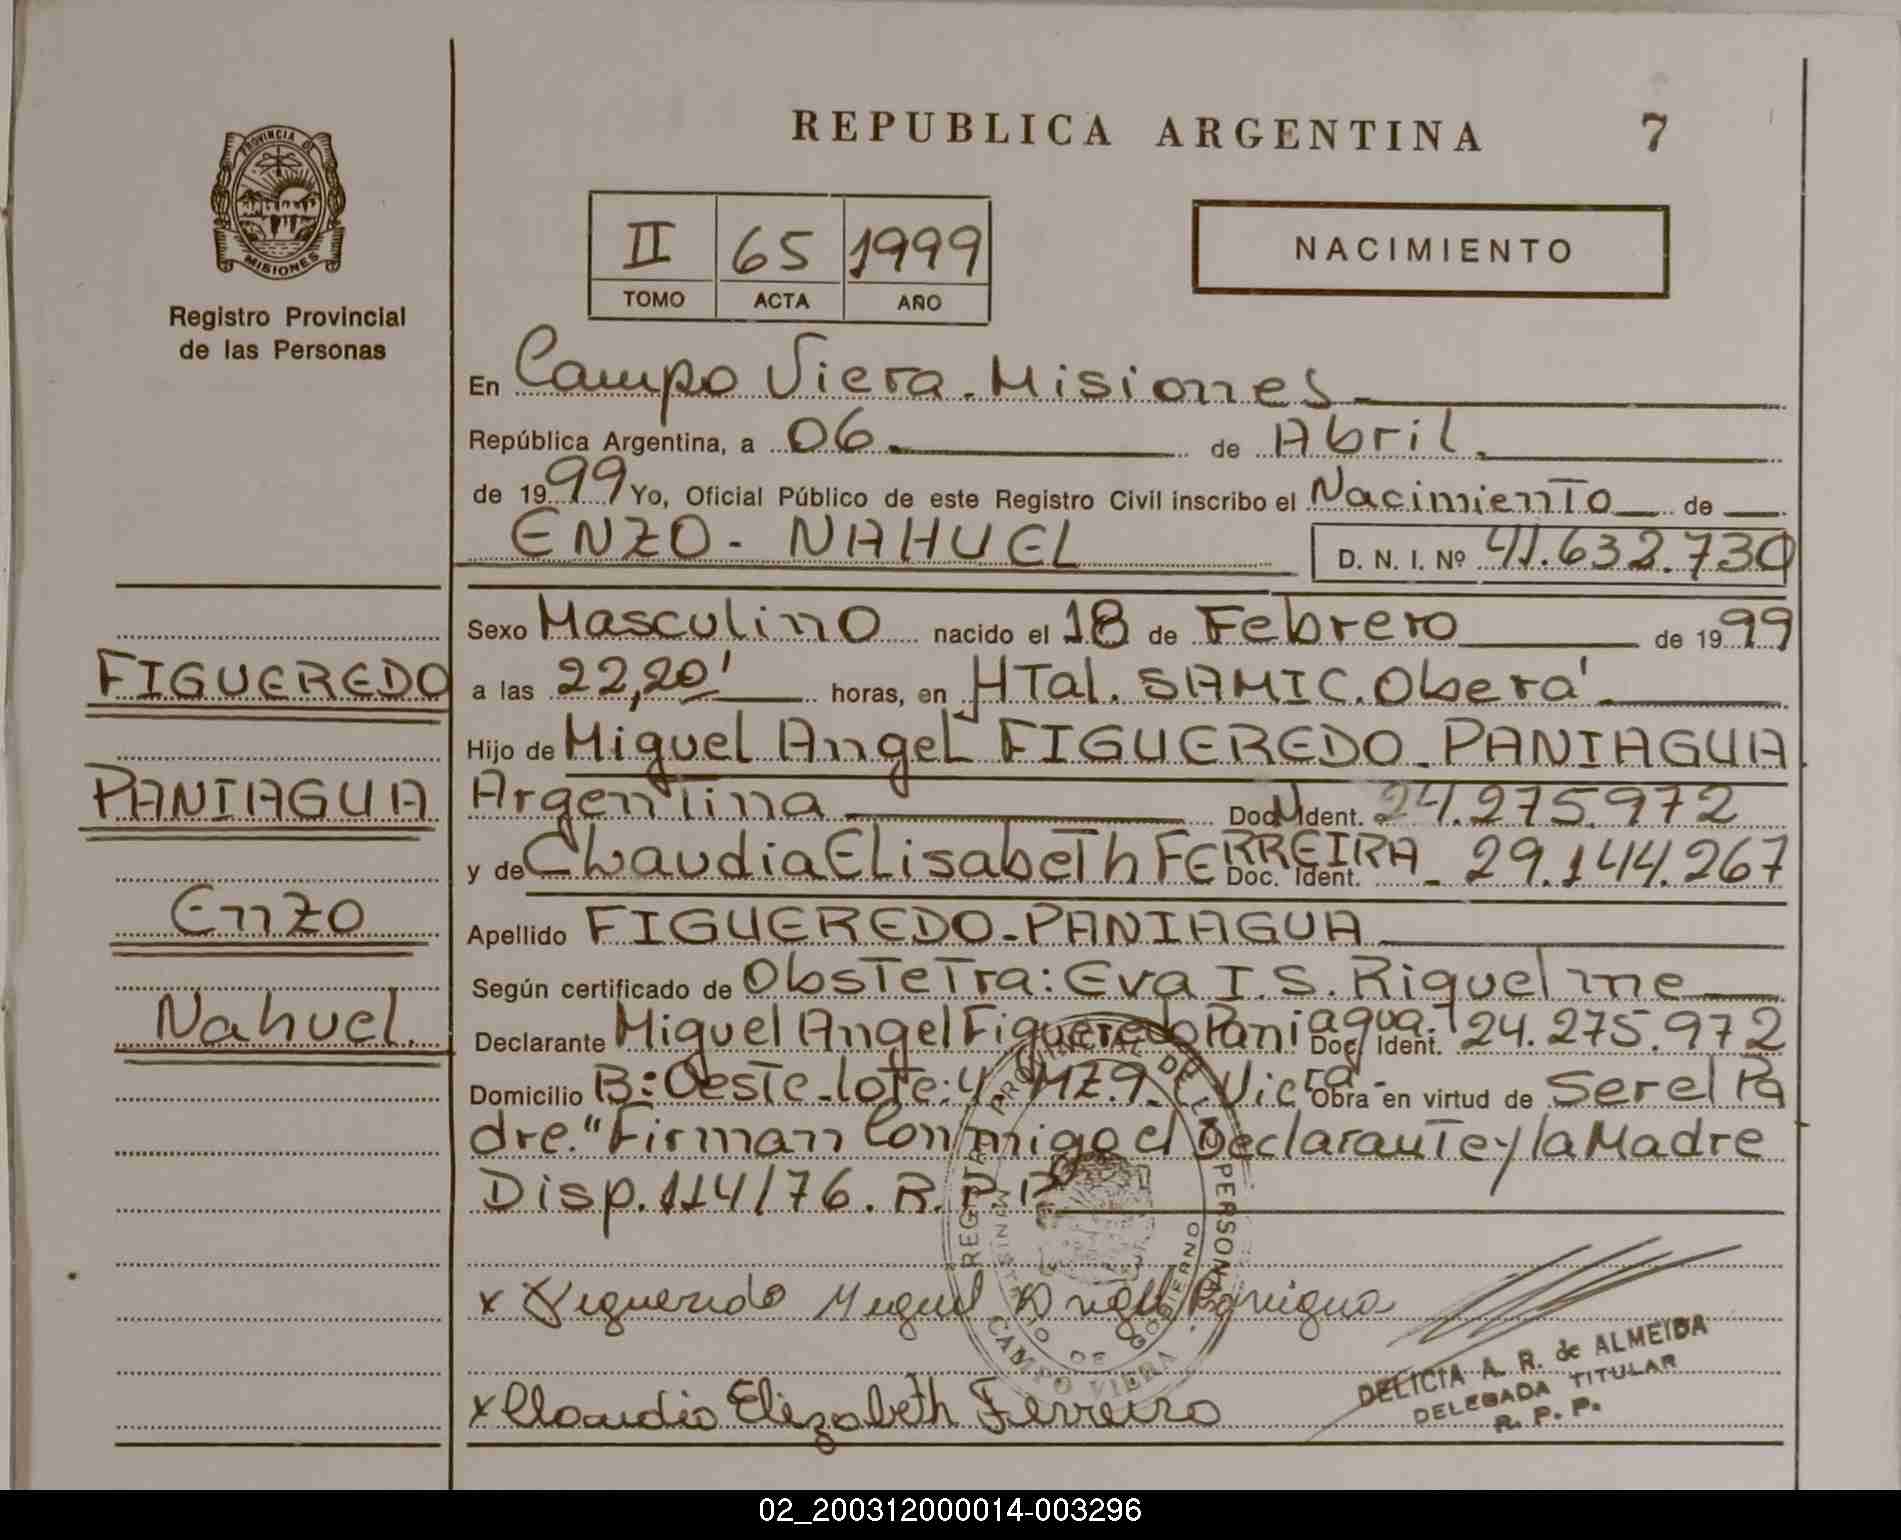 REPUBLICA ARGENTINA 7
PROVINCIA DE
MISIONES
Registro Provincial
de las Personas
II 65 1999
TOMO ACTA AÑO
NACIMIENTO
En Campo Viera - Misiones
República Argentina, a 06 de Abril
de 1999 Yo, Oficial Público de este Registro Civil inscribo el Nacimiento de
ENZO - NAHUEL D. N. I. Nº 41.632.730
Sexo Masculino nacido el 18 de Febrero de 1999
FIGUEREDO
a las 22,20' horas, en HTal. SAMIC. Oberá
Hijo de Miguel Angel FIGUEREDO - PANIAGUA
PANIAGUA
Argentina Doc. Ident. 24.275.972
y de Claudia Elisabeth FERREIRA - Doc. Ident. 29.144.267
Enzo
Apellido FIGUEREDO - PANIAGUA
Según certificado de Obstetra: Eva I. S. Riquelme
Nahuel.
Declarante Miguel Angel Figueredo Paniagua. Doc. Ident. 24.275.972
Domicilio B: Oeste - lote: 4 MZ.9 - C. Vicra - Obra en virtud de Ser el Pa
dre. "Firman Conmigo el Declarante y la Madre
Disp. 114/76. R.P.P
REGISTRO PROVINCIAL DE LAS PERSONAS
MINISTERIO DE GOBIERNO
CAMPO VIERA
x Figueredo Miguel Angel Paniagua
x Claudia Elizabeth Ferreira
DELICIA A. R. de ALMEIDA
DELEGADA TITULAR
R. P. P.
02_200312000014-003296